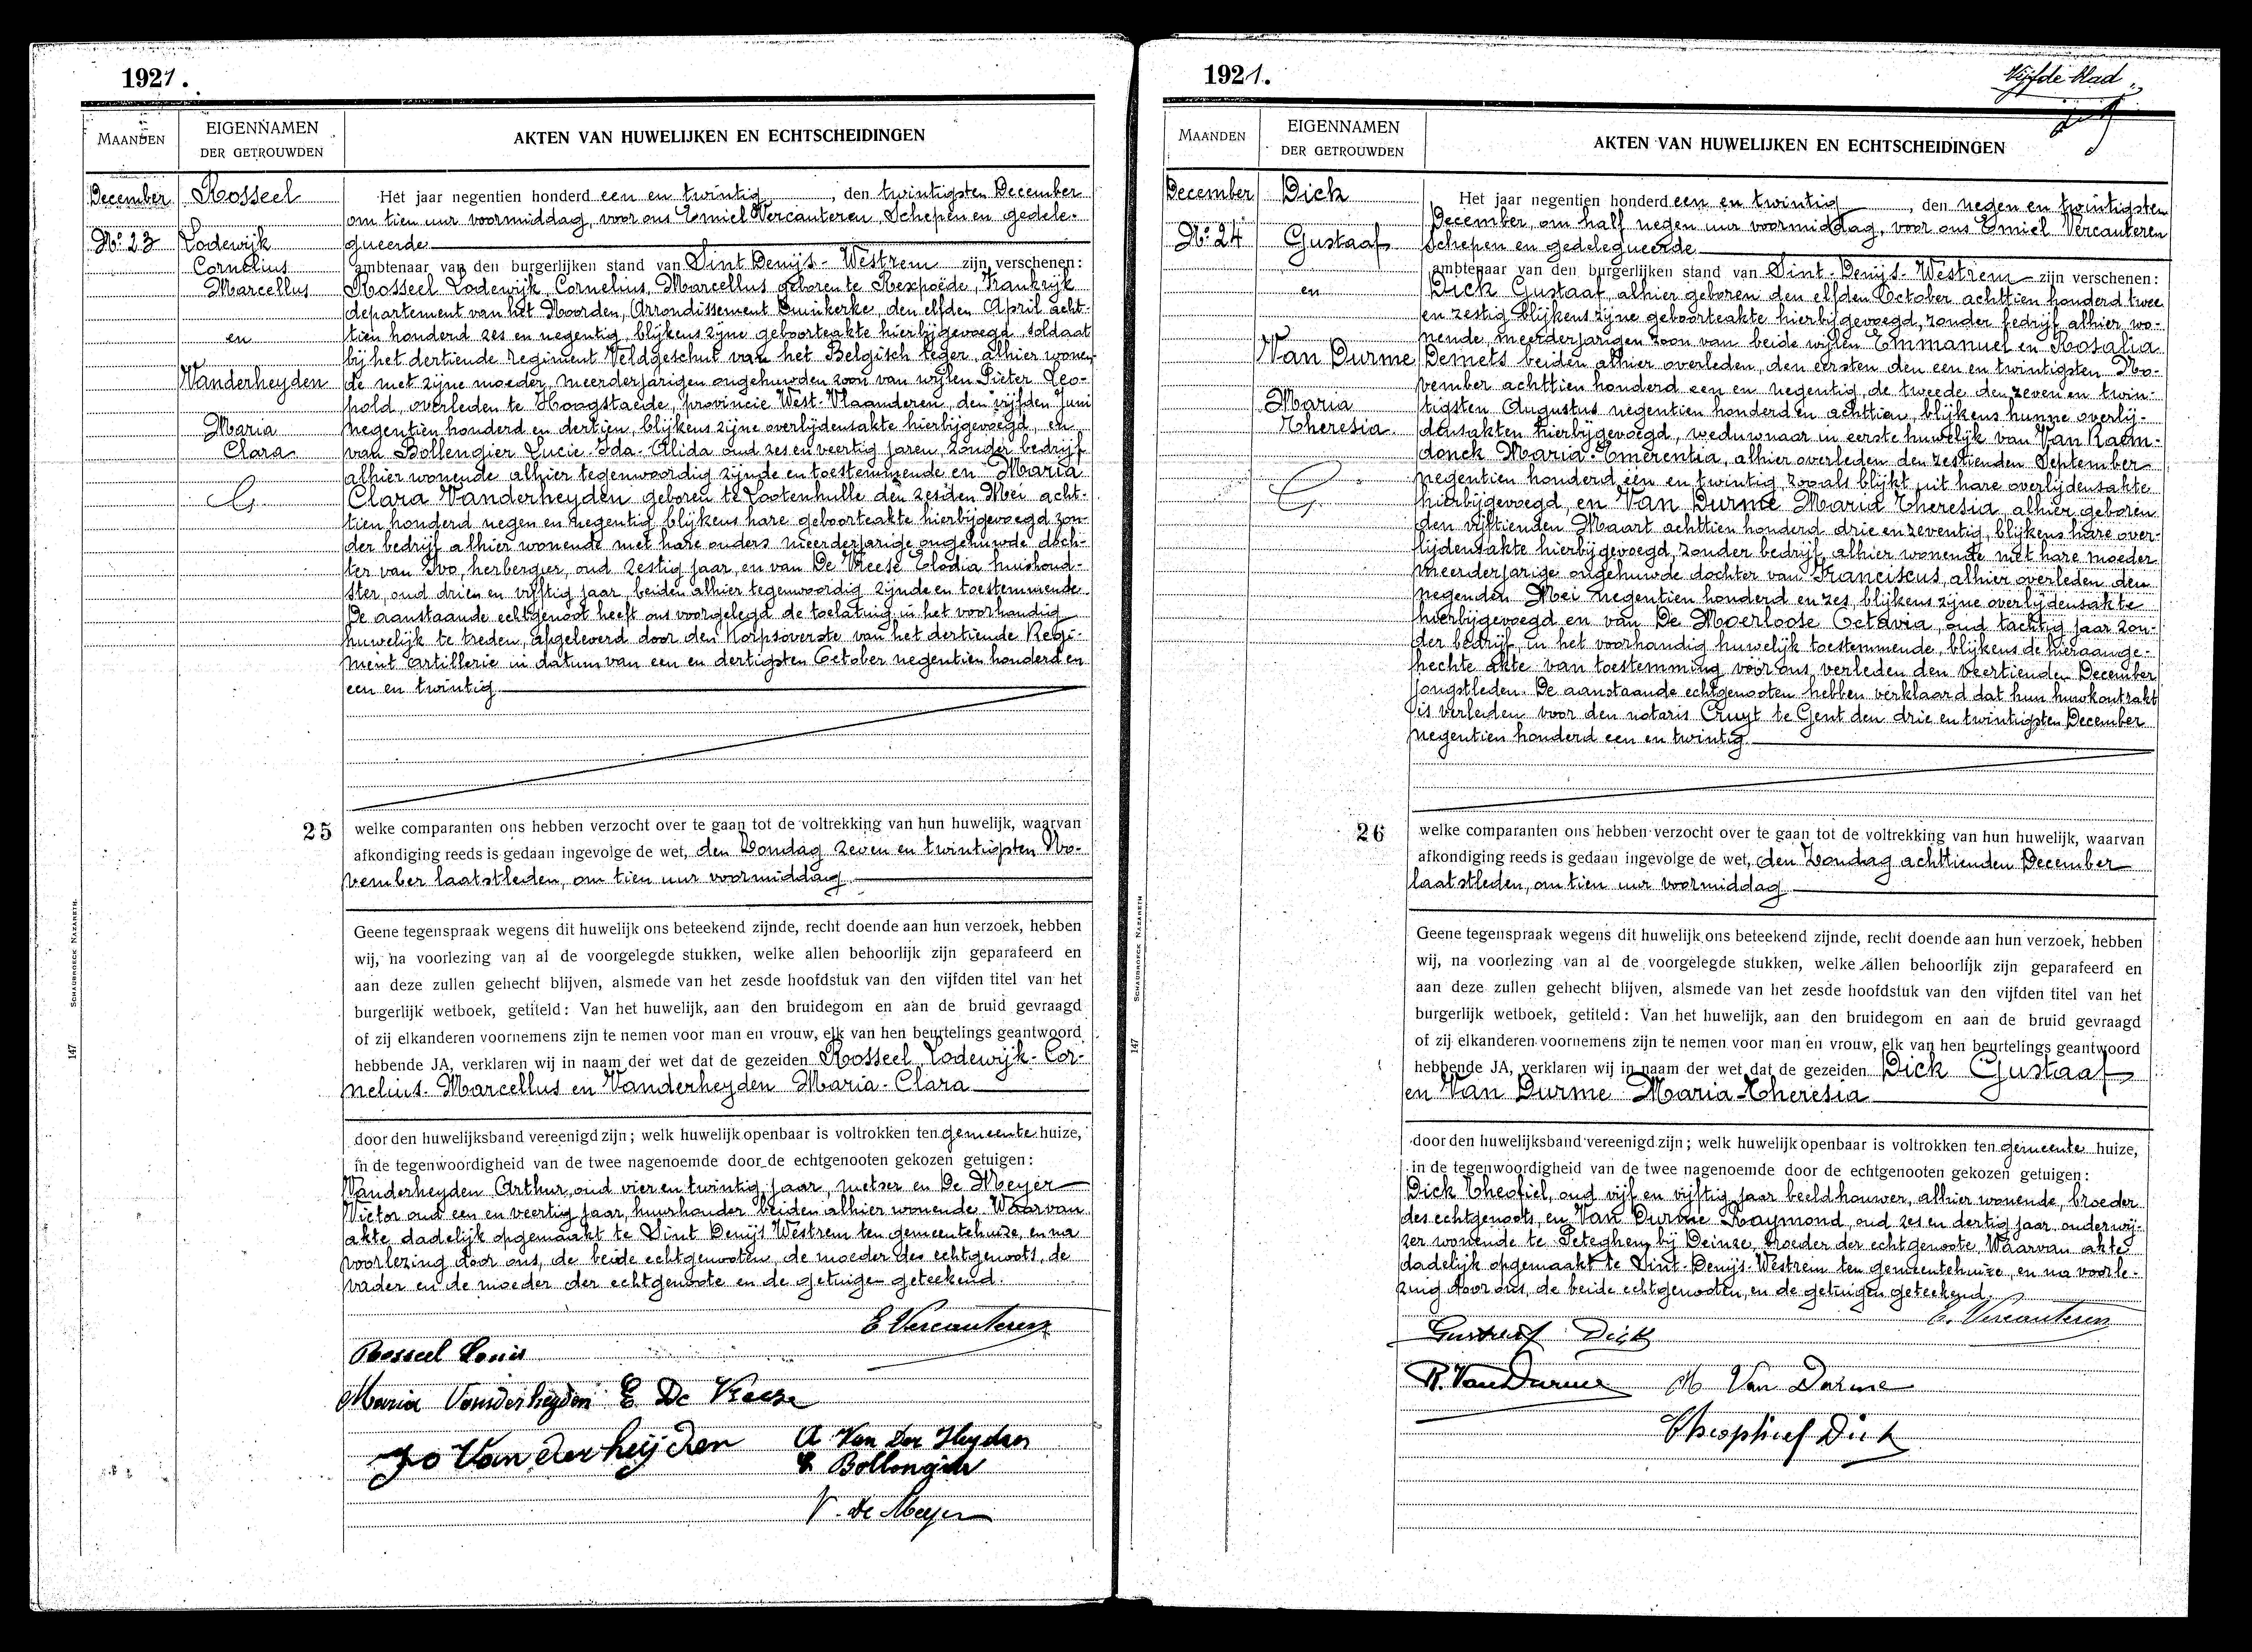 1921.
MAANDEN
EIGENNAMEN
DER GETROUWDEN
AKTEN VAN HUWELIJKEN EN ECHTSCHEIDINGEN
December
Rosseel
No. 23
Lodewijk
Cornelius
Marcellus
en
Vanderheyden
Maria
Clara
Het jaar negentien honderd een en twintig, den twintigsten December
om tien uur voormiddag, voor ons Emiel Vercauteren, Schepen en gedele-
gueerde
ambtenaar van den burgerlijken stand van Sint Denijs-Westrem zijn verschenen:
Rosseel Lodewijk, Cornelius, Marcellus geboren te Rexpoëde, Frankrijk
departement van het Noorden, Arrondissement Duinkerke, den elfden April acht-
tien honderd zes en negentig, blijkens zijne geboorteakte hierbijgevoegd, soldaat
bij het dertiende regiment Veldgeschut van het Belgisch leger, alhier wonen-
de met zijne moeder, meerderjarigen ongehuwden zoon van wijlen Pieter Leo-
pold, overleden te Hoogstaede, provincie West-Vlaanderen, den vijfden Juni
negentien honderd en dertien, blijkens zijne overlijdensakte hierbijgevoegd, en
van Bollengier Lucie-Ida-Alida oud zes en veertig jaren, zonder bedrijf
alhier wonende alhier tegenwoordig zijnde en toestemmende en Maria
Clara Vanderheyden geboren te Lootenhulle den zesden Mei acht-
tien honderd negen en negentig blijkens hare geboorteakte hierbijgevoegd zon-
der bedrijf alhier wonende met hare ouders meerderjarige ongehuwde doch-
ter van Ivo, herbergier, oud zestig jaar, en van De Vreese Elodia huishoud-
ster, oud drie en vijftig jaar, beiden alhier tegenwoordig zijnde en toestemmende.
De aanstaande echtgenoot heeft ons voorgelegd de toelating in het voorhandig
huwelijk te treden, afgeleverd door den Korpsoverste van het dertiende Regi-
ment artillerie in datum van een en dertigsten October negentien honderd en
een en twintig.
25
welke comparanten ons hebben verzocht over te gaan tot de voltrekking van hun huwelijk, waarvan
afkondiging reeds is gedaan ingevolge de wet, den Zondag zeven en twintigsten No-
vember laatstleden, om tien uur voormiddag.
Geene tegenspraak wegens dit huwelijk ons beteekend zijnde, recht doende aan hun verzoek, hebben
wij, na voorlezing van al de voorgelegde stukken, welke allen behoorlijk zijn geparafeerd en
aan deze zullen gehecht blijven, alsmede van het zesde hoofdstuk van den vijfden titel van het
burgerlijk wetboek, getiteld: Van het huwelijk, aan den bruidegom en aan de bruid gevraagd
of zij elkanderen voornemens zijn te nemen voor man en vrouw, elk van hen beurtelings geantwoord
hebbende JA, verklaren wij in naam der wet dat de gezeiden Rosseel, Lodewijk-Cor-
nelius-Marcellus en Vanderheyden Maria-Clara
door den huwelijksband vereenigd zijn; welk huwelijk openbaar is voltrokken ten gemeente huize,
in de tegenwoordigheid van de twee nagenoemde door de echtgenooten gekozen getuigen:
Vanderheyden Arthur, oud vier en twintig jaar, metser en De Meyer
Victor oud een en veertig jaar, huurhouder beiden alhier wonende. Waarvan
akte dadelijk opgemaakt te Sint Denijs Westrem ten gemeentehuize, en na
voorlezing door ons, de beide echtgenooten, de moeder des echtgenoots, de
vader en de moeder der echtgenoote en de getuigen geteekend.
E. Vercauteren
Rosseel Louis
Maria Vanderheyden E De Vreese
Ivo Vanderheijden
A Van Der Heyden
L Bollengier
V. De Meyer
SCHAUBROECK NAZARETH.
147
1921.
Vijfde blad
MAANDEN
EIGENNAMEN
DER GETROUWDEN
AKTEN VAN HUWELIJKEN EN ECHTSCHEIDINGEN
December
Dick
No. 24
Gustaaf
en
Van Durme
Maria
Theresia
Het jaar negentien honderd een en twintig, den negen en twintigsten
December, om half negen uur voormiddag, voor ons Emiel Vercauteren
Schepen en gedelegueerde
ambtenaar van den burgerlijken stand van Sint-Denijs-Westrem zijn verschenen:
Dick Gustaaf, alhier geboren den elfden October achttien honderd twee
en zestig blijkens zijne geboorteakte hierbij gevoegd, zonder bedrijf alhier wo-
nende, meerderjarigen zoon van beide wijlen Emmanuel en Rosalia
Demets beiden alhier overleden, den eersten den een en twintigsten No-
vember achttien honderd een en negentig, de tweede den zeven en twin-
tigsten Augustus negentien honderd en achttien, blijkens hunne overlij-
densakten hierbijgevoegd, weduwnaar in eerste huwelijk van Van Raem-
donck Maria-Emerentia, alhier overleden den zestienden September
negentien honderd een en twintig, zooals blijkt uit hare overlijdensakte
hierbijgevoegd, en Van Durme Maria Theresia, alhier geboren
den vijftienden Maart achttien honderd drie en zeventig, blijkens hare over-
lijdensakte hierbijgevoegd, zonder bedrijf, alhier wonende met hare moeder
meerderjarige ongehuwde dochter van Franciscus, alhier overleden den
negenden Mei negentien honderd en zes, blijkens zijne overlijdensakte
hierbijgevoegd en van De Moerloose Octavia, oud tachtig jaar zon-
der bedrijf, in het voorhandig huwelijk toestemmende, blijkens de hieraange-
hechte akte van toestemming voor ons, verleden den veertienden December
jongstleden. De aanstaande echtgenooten hebben verklaard dat hun huwkontrakt
is verleden voor den notaris Cruyt te Gent den drie en twintigsten December
negentien honderd een en twintig.
26
welke comparanten ons hebben verzocht over te gaan tot de voltrekking van hun huwelijk, waarvan
afkondiging reeds is gedaan ingevolge de wet, den Zondag achttienden December
laatstleden, om tien uur voormiddag
Geene tegenspraak wegens dit huwelijk ons beteekend zijnde, recht doende aan hun verzoek, hebben
wij, na voorlezing van al de voorgelegde stukken, welke allen behoorlijk zijn geparafeerd en
aan deze zullen gehecht blijven, alsmede van het zesde hoofdstuk van den vijfden titel van het
burgerlijk wetboek, getiteld: Van het huwelijk, aan den bruidegom en aan de bruid gevraagd
of zij elkanderen voornemens zijn te nemen voor man en vrouw, elk van hen beurtelings geantwoord
hebbende JA, verklaren wij in naam der wet dat de gezeiden Dick Gustaaf
en Van Durme Maria-Theresia
door den huwelijksband vereenigd zijn; welk huwelijk openbaar is voltrokken ten gemeente huize,
in de tegenwoordigheid van de twee nagenoemde door de echtgenooten gekozen getuigen:
Dick Theofiel, oud vijf en vijftig jaar beeldhouwer, alhier wonende, broeder
des echtgenoots, en Van Durme Raymond, oud zes en dertig jaar onderwij-
zer wonende te Peteghem bij Deinze, broeder der echtgenoote. Waarvan akte
dadelijk opgemaakt te Sint-Denijs-Westrem ten gemeentehuize, en na voorle-
zing door ons, de beide echtgenooten, en de getuigen geteekend.
E. Vercauteren
Gustaaf Dick
R. Van Durme M Van Durme
Theophiel Dick
SCHAUBROECK NAZARETH
147